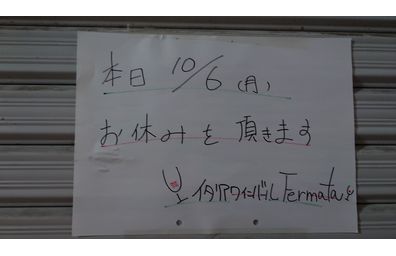 本日 10/6 (月)
お休みを頂きます
イタリアワインバル Fermata